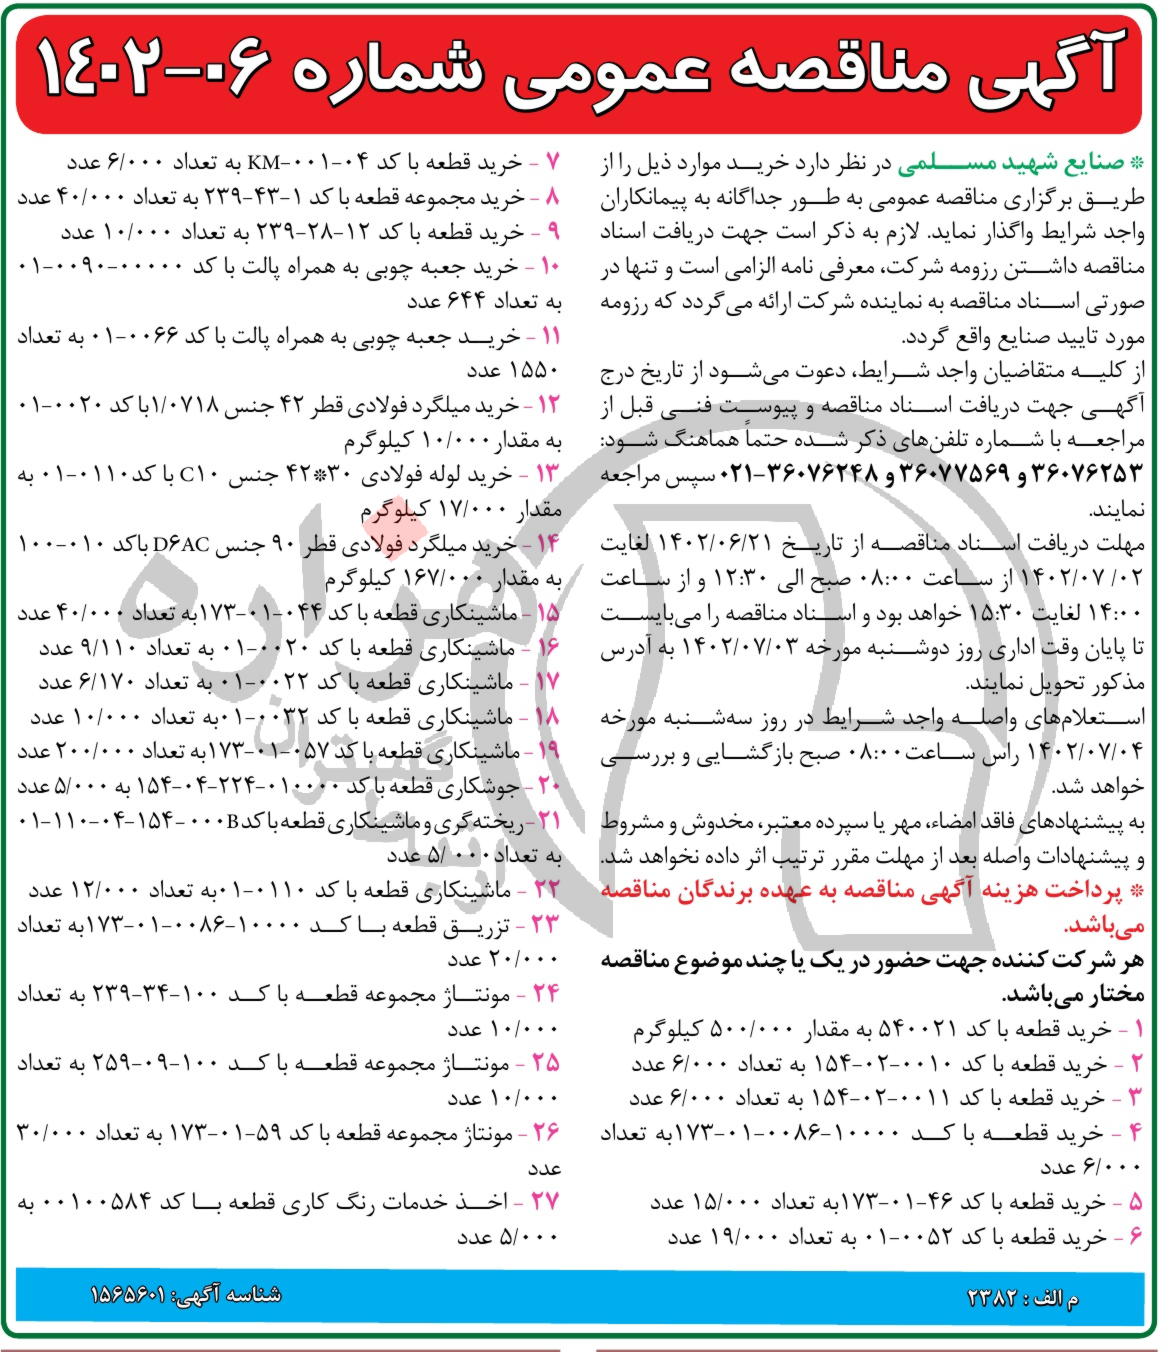 آگهی مناقصه عمومی شماره ۰۶-۱۴۰۲
* صنایع شهید مسلمی در نظر دارد خرید موارد ذیل را از
طریق برگزاری مناقصه عمومی به طور جداگانه به پیمانکاران
واجد شرایط واگذار نماید. لازم به ذکر است جهت دریافت اسناد
مناقصه داشتن رزومه شرکت، معرفی نامه الزامی است و تنها در
صورتی اسناد مناقصه به نماینده شرکت ارائه می‌گردد که رزومه
مورد تایید صنایع واقع گردد.
از کلیه متقاضیان واجد شرایط، دعوت می‌شود از تاریخ درج
آگهی جهت دریافت اسناد مناقصه و پیوست فنی قبل از
مراجعه با شماره تلفن‌های ذکر شده حتماً هماهنگ شود:
۳۶۰۷۶۲۵۳ و ۳۶۰۷۷۵۶۹ و ۳۶۰۷۶۲۴۸-۰۲۱ سپس مراجعه
نمایند.
مهلت دریافت اسناد مناقصه از تاریخ ۱۴۰۲/۰۶/۲۱ لغایت
۱۴۰۲/۰۷/۰۲ از ساعت ۰۸:۰۰ صبح الی ۱۲:۳۰ و از ساعت
۱۴:۰۰ لغایت ۱۵:۳۰ خواهد بود و اسناد مناقصه را می‌بایست
تا پایان وقت اداری روز دوشنبه مورخه ۱۴۰۲/۰۷/۰۳ به آدرس
مذکور تحویل نمایند.
استعلام‌های واصله واجد شرایط در روز سه‌شنبه مورخه
۱۴۰۲/۰۷/۰۴ راس ساعت ۰۸:۰۰ صبح بازگشایی و بررسی
خواهد شد.
به پیشنهادهای فاقد امضاء، مهر یا سپرده معتبر، مخدوش و مشروط
و پیشنهادات واصله بعد از مهلت مقرر ترتیب اثر داده نخواهد شد.
* پرداخت هزینه آگهی مناقصه به عهده برندگان مناقصه
می‌باشد.
هر شرکت کننده جهت حضور در یک یا چند موضوع مناقصه
مختار می‌باشد.
۱ - خرید قطعه با کد ۵۴۰۰۲۱ به مقدار ۵۰۰/۰۰۰ کیلوگرم
۲ - خرید قطعه با کد ۰۰۱۰-۰۲-۱۵۴ به تعداد ۶/۰۰۰ عدد
۳ - خرید قطعه با کد ۰۰۱۱-۰۲-۱۵۴ به تعداد ۶/۰۰۰ عدد
۴ - خرید قطعه با کد ۱۰۰۰۰-۰۰۸۶-۰۱-۱۷۳به تعداد
۶/۰۰۰ عدد
۵ - خرید قطعه با کد ۴۶-۰۱-۱۷۳به تعداد ۱۵/۰۰۰ عدد
۶ - خرید قطعه با کد ۰۰۵۲-۰۱ به تعداد ۱۹/۰۰۰ عدد
۷ - خرید قطعه با کد KM-۰۰۱-۰۴ به تعداد ۶/۰۰۰ عدد
۸ - خرید مجموعه قطعه با کد ۱-۴۳-۲۳۹ به تعداد ۴۰/۰۰۰ عدد
۹ - خرید قطعه با کد ۱۲-۲۸-۲۳۹ به تعداد ۱۰/۰۰۰ عدد
۱۰ - خرید جعبه چوبی به همراه پالت با کد ۰۰۰۰۰-۰۰۹۰-۰۱
به تعداد ۶۴۴ عدد
۱۱ - خرید جعبه چوبی به همراه پالت با کد ۰۰۶۶-۰۱ به تعداد
۱۵۵۰ عدد
۱۲ - خرید میلگرد فولادی قطر ۴۲ جنس ۱/۰۷۱۸با کد ۰۰۲۰-۰۱
به مقدار ۱۰/۰۰۰ کیلوگرم
۱۳ - خرید لوله فولادی ۳۰*۴۲ جنس C۱۰ با کد۰۱۱۰-۰۱ به
مقدار ۱۷/۰۰۰ کیلوگرم
۱۴ - خرید میلگرد فولادی قطر ۹۰ جنس D۶AC باکد ۰۱۰-۱۰۰
به مقدار ۱۶۷/۰۰۰ کیلوگرم
۱۵ - ماشینکاری قطعه با کد ۰۴۴-۰۱-۱۷۳به تعداد ۴۰/۰۰۰ عدد
۱۶ - ماشینکاری قطعه با کد ۰۰۲۰-۰۱ به تعداد ۹/۱۱۰ عدد
۱۷ - ماشینکاری قطعه با کد ۰۰۲۲-۰۱ به تعداد ۶/۱۷۰ عدد
۱۸ - ماشینکاری قطعه با کد ۰۰۳۲-۰۱به تعداد ۱۰/۰۰۰ عدد
۱۹ - ماشینکاری قطعه با کد ۰۵۷-۰۱-۱۷۳به تعداد ۲۰۰/۰۰۰ عدد
۲۰ - جوشکاری قطعه با کد ۰۱۰۰۰۰-۲۲۴-۰۴-۱۵۴ به ۵/۰۰۰ عدد
۲۱- ریخته‌گری و ماشینکاری قطعه با کد۰۱-۱۱۰-۰۴-۱۵۴-۰۰۰B
به تعداد۵/۰۰۰ عدد
۲۲ - ماشینکاری قطعه با کد ۰۱۱۰-۰۱به تعداد ۱۲/۰۰۰ عدد
۲۳ - تزریق قطعه با کد ۱۰۰۰۰-۰۰۸۶-۰۱-۱۷۳به تعداد
۲۰/۰۰۰ عدد
۲۴ - مونتاژ مجموعه قطعه با کد ۱۰۰-۳۴-۲۳۹ به تعداد
۱۰/۰۰۰ عدد
۲۵ - مونتاژ مجموعه قطعه با کد ۱۰۰-۰۹-۲۵۹ به تعداد
۱۰/۰۰۰ عدد
۲۶ - مونتاژ مجموعه قطعه با کد ۵۹-۰۱-۱۷۳ به تعداد ۳۰/۰۰۰
عدد
۲۷ - اخذ خدمات رنگ کاری قطعه با کد ۰۰۱۰۰۵۸۴ به
۵/۰۰۰ عدد
م الف : ۲۳۸۲
شناسه آگهی: ۱۵۶۵۶۰۱
هزاره